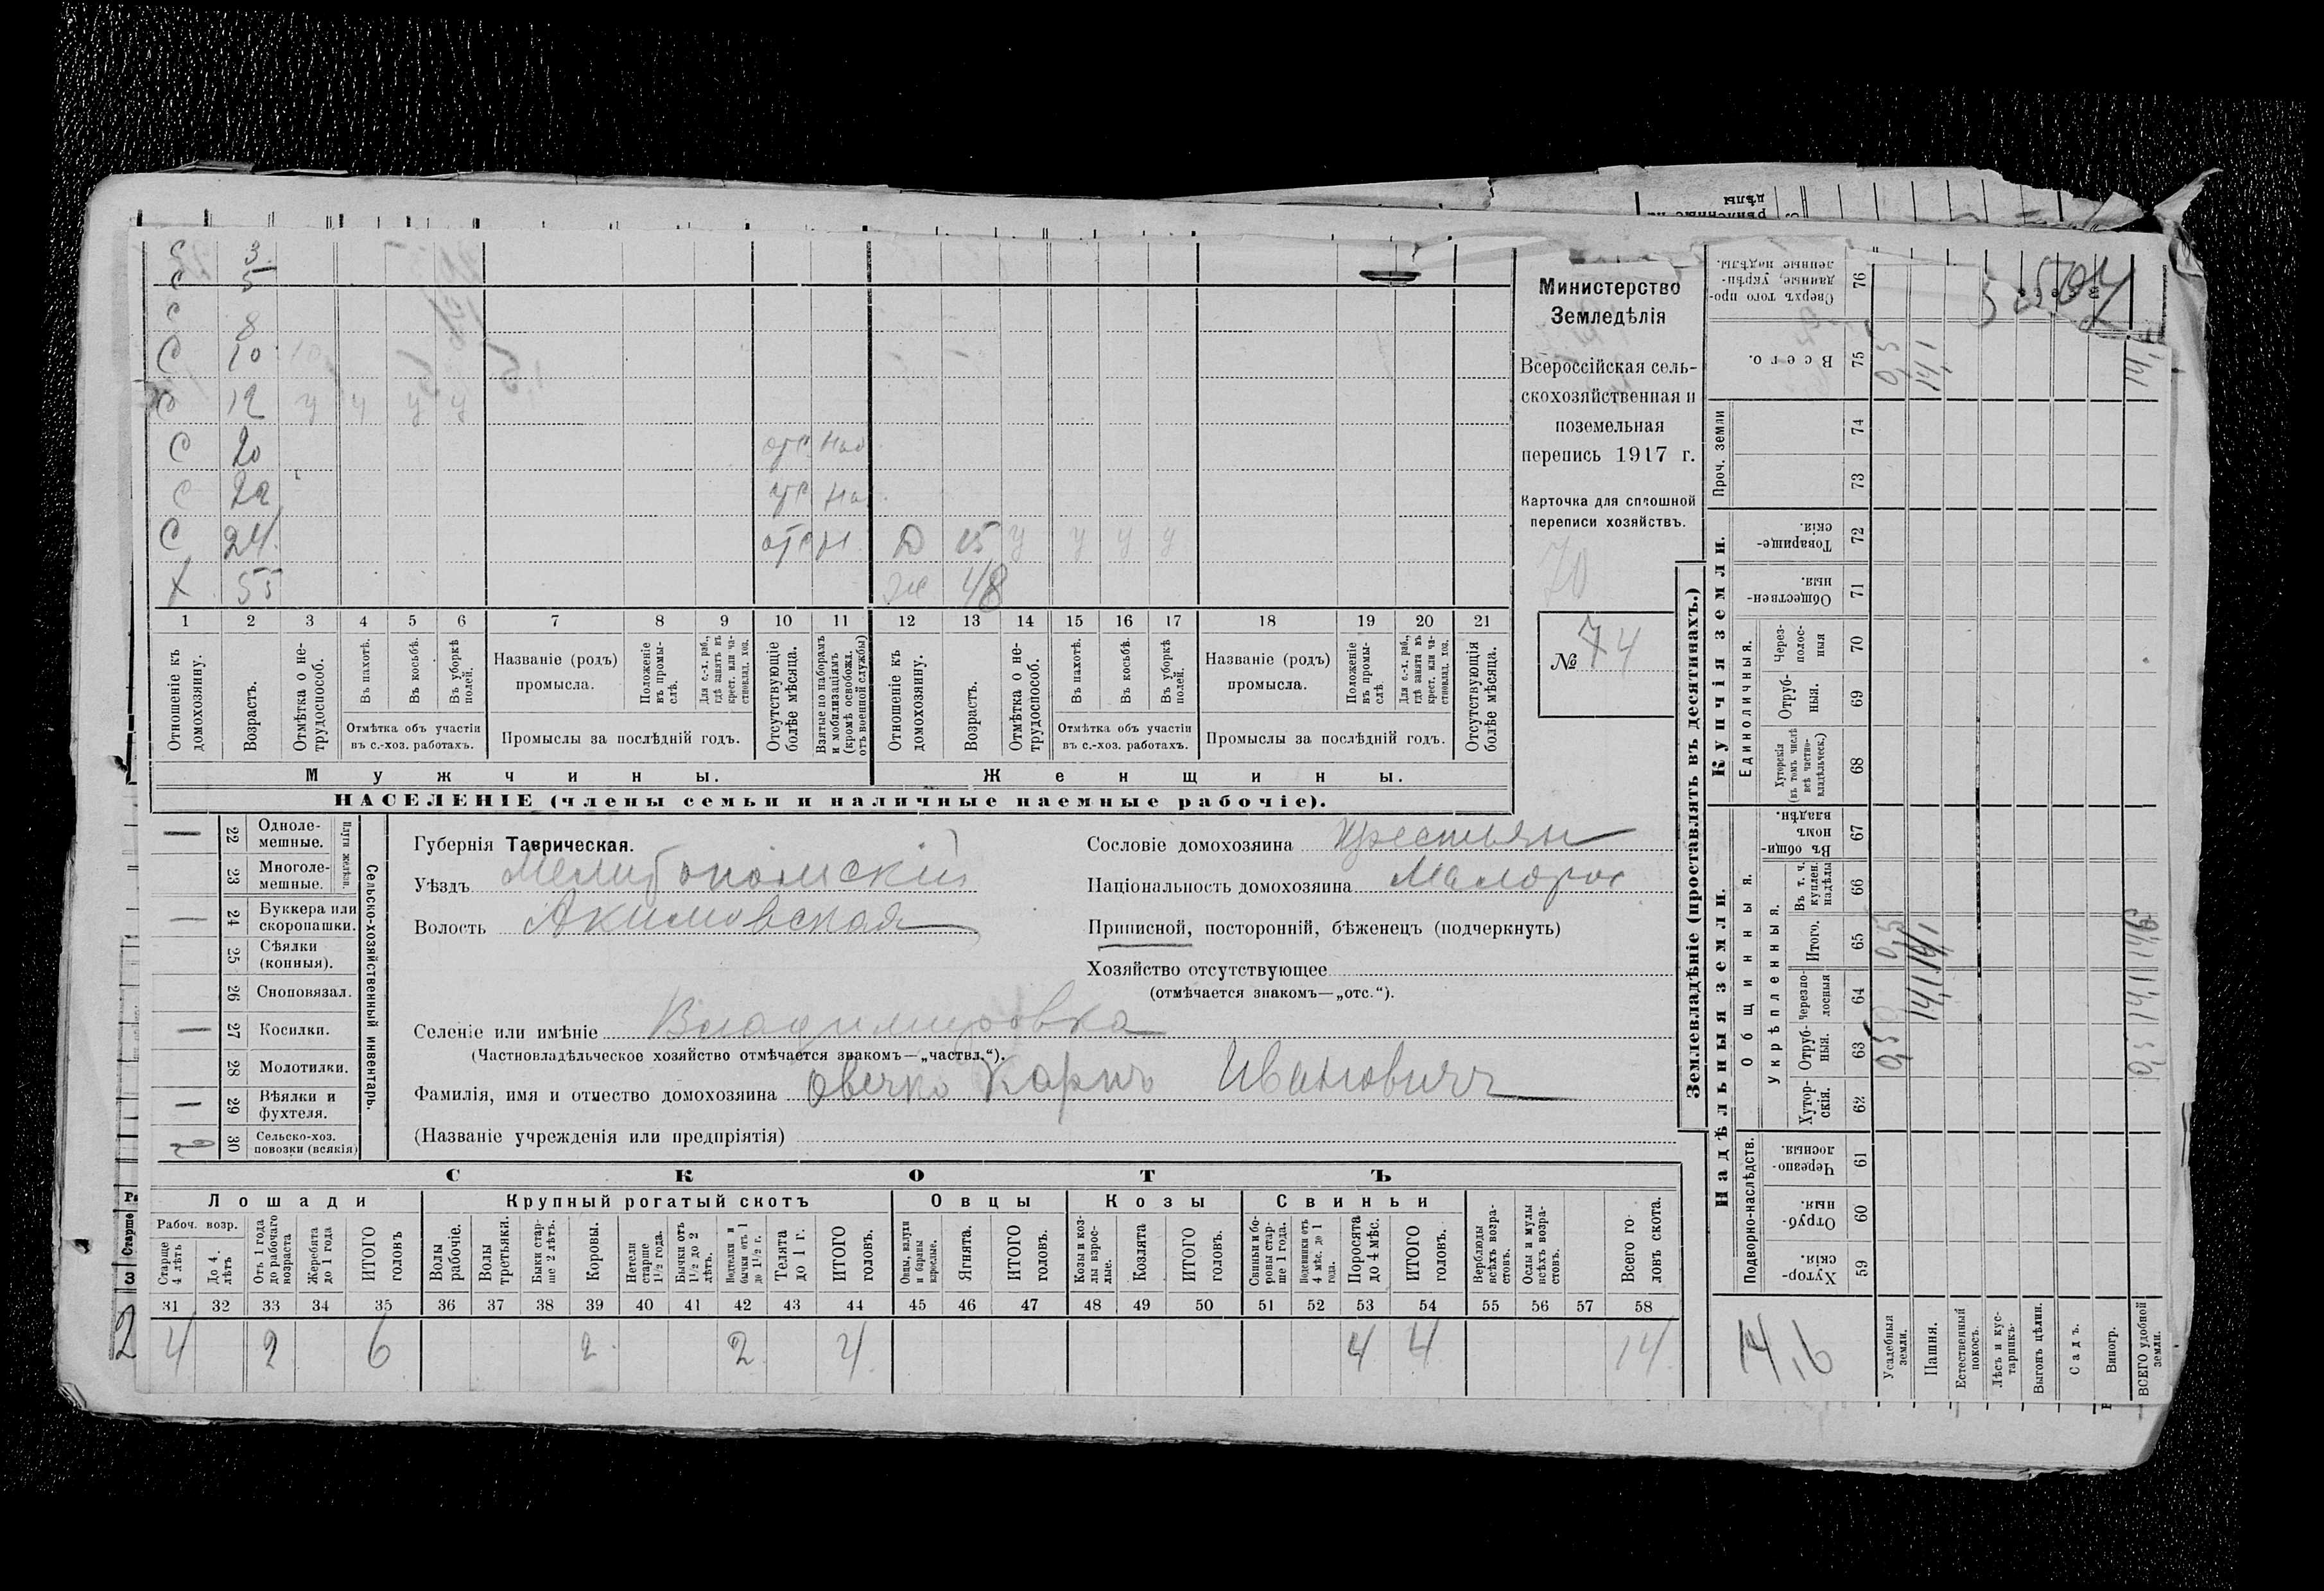 С 3
С 5
С 8
С 10
С 12 у у у у
С 20 отс наб
С 22 отс на
С 24 отс н Д 15 у у у у
Х 55 ж 48
1 2 3 4 5 6 7 8 9 10 11 12 13 14 15 16 17 18 19 20 21
Отношеніе къ домохозяину.
Возрастъ.
Отмѣтка о нетрудоспособ.
Въ пахотѣ.
Въ косьбѣ.
Въ уборкѣ полей.
Отмѣтка объ участіи
въ с.-хоз. работахъ.
Названіе (родъ)
промысла.
Положеніе въ промыслѣ.
Для с.-х. раб., гдѣ занятъ въ крест. или частновлад. хоз.
Промыслы за послѣдній годъ.
Отсутствующіе болѣе мѣсяца.
Взятые по наборамъ и мобилизаціямъ (кромѣ освобожд. отъ военной службы)
Отношеніе къ домохозяину.
Возрастъ.
Отмѣтка о нетрудоспособ.
Въ пахотѣ.
Въ косьбѣ.
Въ уборкѣ полей.
Отмѣтка объ участіи
въ с.-хоз. работахъ.
Названіе (родъ)
промысла.
Положеніе въ промыслѣ
Для с.-х. раб., гдѣ занята въ крест. или частновлад. хоз.
Промыслы за послѣдній годъ.
Отсутствующія болѣе мѣсяца.
Мужчины. Женщины.
НАСЕЛЕНІЕ (члены семьи и наличные наемные рабочіе).
Министерство
Земледѣлія
Всероссійская сель-
скохозяйственная и
поземельная
перепись 1917 г.
Карточка для сплошной
переписи хозяйствъ.
70
№ 74
22 Одноле-
мешные.
23 Многоле-
мешные.
Плуги желѣзн.
24 Буккера или
скоропашки.
25 Сѣялки
(конныя).
26 Сноповязал.
27 Косилки.
28 Молотилки.
29 Вѣялки и
фухтеля.
30 Сельско-хоз.
повозки (всякія)
2
Сельско-хозяйственный инвентарь.
Губернія Таврическая.
Уѣздъ Мелитопольскій
Волость Акимовская
Сословіе домохозяина крестьян
Національность домохозяина Малорос
Приписной, посторонній, бѣженецъ (подчеркнуть)
Хозяйство отсутствующее
(отмѣчается знакомъ—„отс.“).
Селеніе или имѣніе Владимировка
(Частновладѣльческое хозяйство отмѣчается знакомъ—„частвл.“).
Фамилія, имя и отчество домохозяина Овечко Карпъ Ивановичъ
(Названіе учрежденія или предпріятія)
СКОТЪ
Лошади Крупный рогатый скотъ Овцы Козы Свиньи
Рабоч. возр.
Старше 4 лѣтъ
До 4 лѣтъ
Отъ 1 года до рабочаго возраста
Жеребята до 1 года
ИТОГО головъ
Волы рабочіе.
Волы третьяки.
Быки старше 2 лѣтъ.
Коровы.
Нетели старше 1½ года.
Бычки отъ 1½ до 2 лѣтъ.
Подтелки и бычки отъ 1 до 1½ г.
Телята до 1 г.
ИТОГО головъ.
Овцы, валухи и бараны взрослые.
Ягнята.
ИТОГО головъ.
Козы и козлы взрослые.
Козлята
ИТОГО головъ.
Свиньи и боровы старше 1 года.
Подсвинки отъ 4 мѣс. до 1 года.
Поросята до 4 мѣс.
ИТОГО головъ.
Верблюды всѣхъ возрастовъ.
Ослы и мулы всѣхъ возрастовъ.
Всего головъ скота.
31 32 33 34 35 36 37 38 39 40 41 42 43 44 45 46 47 48 49 50 51 52 53 54 55 56 57 58
4 2 6 2 2 4 4 4 14
Землевладѣніе (проставлять въ десятинахъ.)
Надѣльныя земли. Купчія земли.
Подворно-наслѣдств.
Общинныя.
Укрѣпленныя.
Единоличныя.
Проч. земли
59 Хутор-
скія.
60 Отруб-
ныя.
61 Черезпо-
лосныя.
62 Хутор-
скія.
63 Отруб-
ныя.
64 Черезпо-
лосныя
65 Итого.
66 Въ т. ч. куплен. надѣлы
67 Въ общи-
номъ
владѣн.
68 Хуторскія
(въ томъ числѣ
всѣ частно-
владѣльческ.)
69 Отруб-
ныя.
70 Через-
полос-
ныя
71 Обществен-
ныя.
72 Товарище-
скія.
73
74
75 Всего.
76 Сверхъ того про-
данные укрѣп-
ленные надѣлы.
Усадебныя земли. 0,5 0,5 0,5
Пашня. 14,1 14,1 14,1
Естественный покосъ.
Лѣсъ и кустарникъ.
Выгонъ цѣлин.
Садъ.
Виногр.
ВСЕГО удобной земли.
14,6